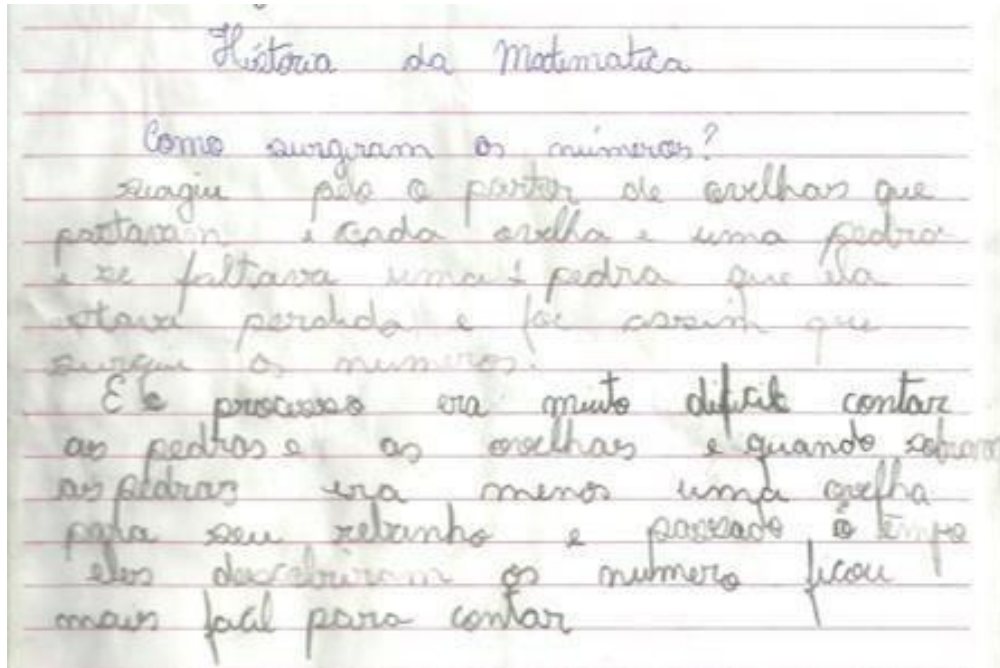 História da Matematica
Como surgiram os números?
surgiu pelo o pastor de ovelhas que
pastavam e cada ovelha e uma pedra
e se faltava uma pedra que ela
estava perdida e foi assim que
surgiu os numeros.
E le processo era muito dificil contar
as pedras e as ovelhas e quando sobrava
as pedras era menos uma ovelha
para seu rebanho e passado o tempo
eles descobriram os numero ficou
mais facil para contar